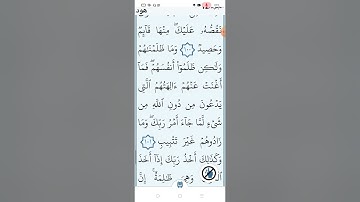 هود
نَقُصُّهُۥ عَلَيْكَ ۖ مِنْهَا قَآئِمٌ
وَحَصِيدٌ ﴿١٠٠﴾ وَمَا ظَلَمْنَٰهُمْ
وَلَٰكِن ظَلَمُوٓا۟ أَنفُسَهُمْ ۖ فَمَآ
أَغْنَتْ عَنْهُمْ ءَالِهَتُهُمُ ٱلَّتِى
يَدْعُونَ مِن دُونِ ٱللَّهِ مِن
شَىْءٍ لَّمَّا جَآءَ أَمْرُ رَبِّكَ ۖ وَمَا
زَادُوهُمْ غَيْرَ تَتْبِيبٍ ﴿١٠١﴾
وَكَذَٰلِكَ أَخْذُ رَبِّكَ إِذَآ أَخَذَ
وَهِىَ ظَٰلِمَةٌ ۚ إِنَّ